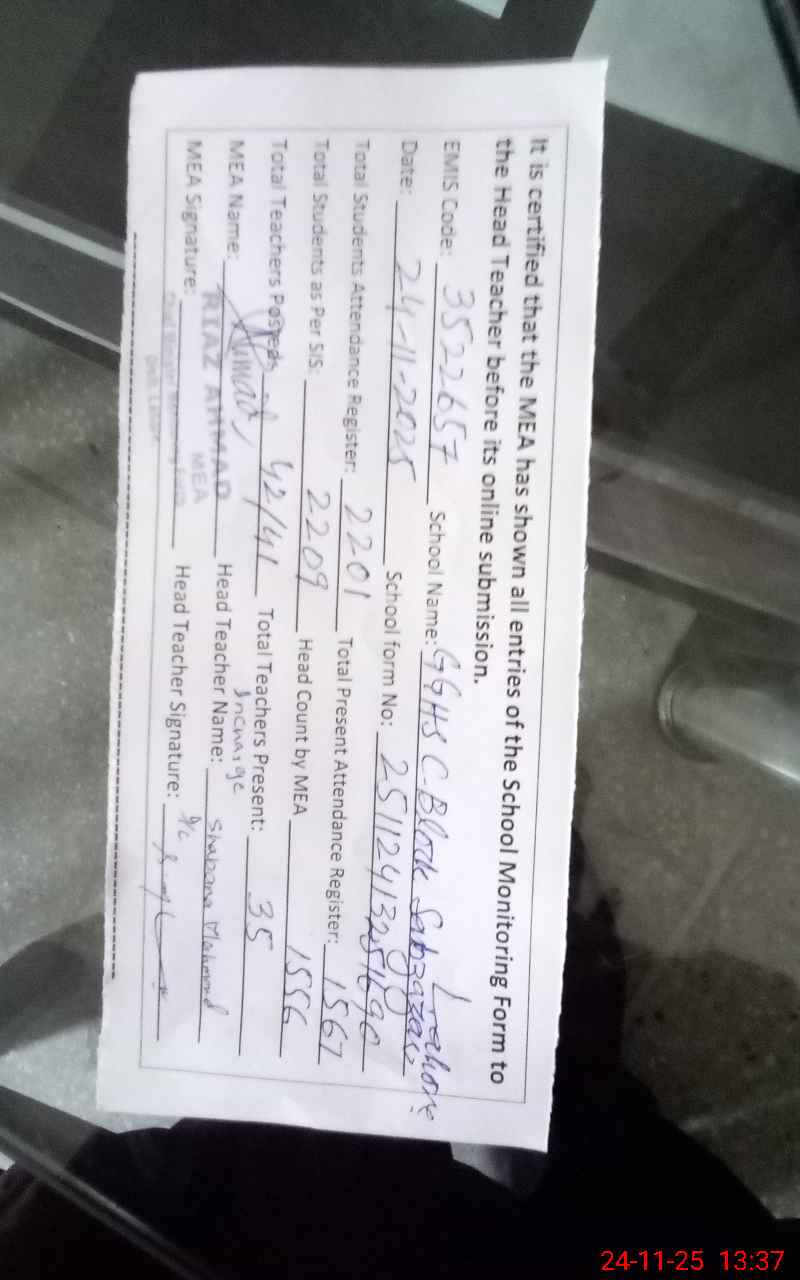 It is certified that the MEA has shown all entries of the School Monitoring Form to
the Head Teacher before its online submission.
EMIS Code: 3522657 School Name: GGHS C.Block Sabzazar Lahore
Date: 24-11-2025 School form No:
Total Students Attendance Register: 2201 Total Present Attendance Register: 1567
Total Students as Per SIS: 2209 Head Count by MEA 1556
Total Teachers Posted: 42/41 Total Teachers Present: 35
MEA Name: RIAZ AHMAD Head Teacher Name: Incharge Shabana Mahmood
MEA
MEA Signature: Head Teacher Signature: I/c
24-11-25 13:37